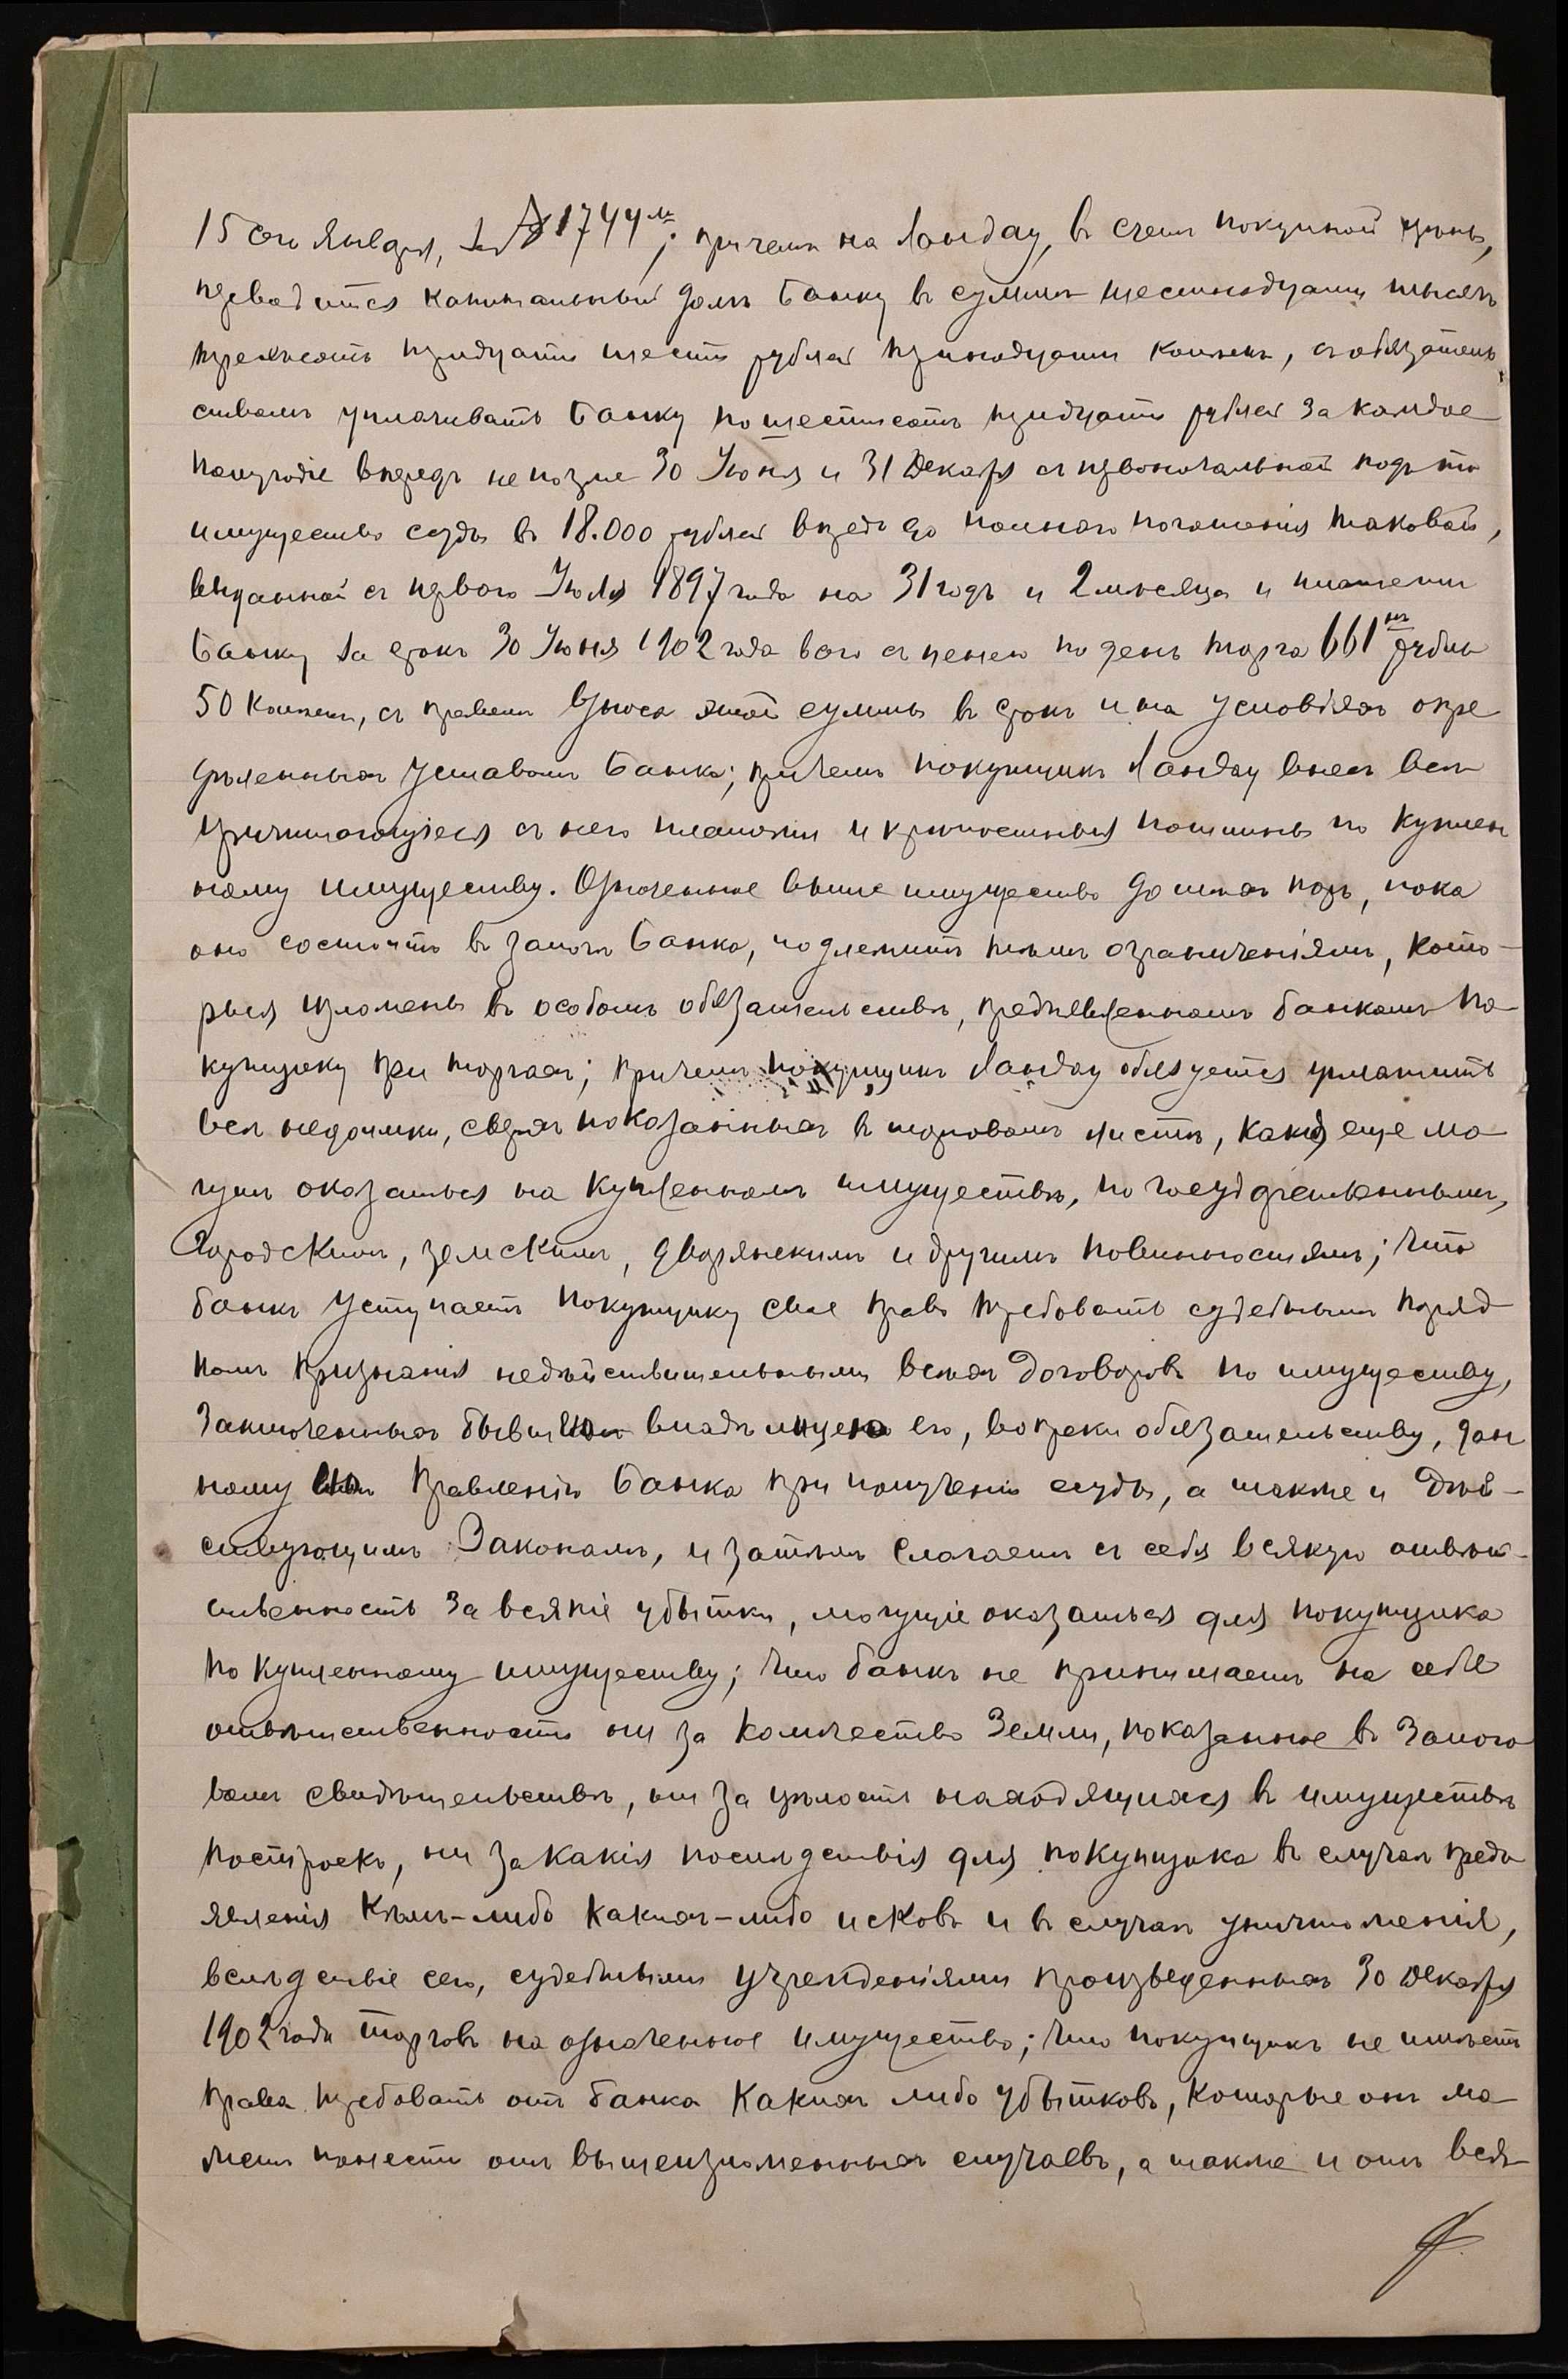 15 сего Января, за № 1744м; причемъ на Ландау, въ счетъ покупной цѣны,
переводится капитальный долгъ банку въ суммѣ шестнадцати тысячъ
трехсотъ тридцати шести рублей тринадцати копѣекъ, съ обязатель
ствомъ уплачивать банку по шестисотъ тридцати рублей за каждое
полугодіе впередъ не позже 30 Іюня и 31 Декабря съ первоначальной подъ то
имущество ссуды въ 18.000 рублей впредь до полнаго погашенія таковой,
выданной съ перваго Іюля 1897 года на 31 годъ и 2 мѣсяца и платежи
банку за срокъ 30 Іюня 1902 года всего съ пенею по день торга 661 рубль
50 копѣекъ, съ правомъ взноса этой суммы въ срокъ и на условіяхъ опре
дѣленныхъ Уставомъ банка; причемъ покупщикъ Ландау внесъ всѣ
причитающіеся съ него платежи и крѣпостныя пошлины по куплен
ному имуществу. Означенное выше имущество до тѣхъ поръ, пока
оно состоитъ въ залогѣ банка, подлежитъ тѣмъ ограниченіямъ, кото-
рыя изложены въ особомъ обязательствѣ, предъявленномъ банкомъ по-
купщику при торгахъ; причемъ покупщикъ Ландау обязуется уплатить
всѣ недоимки, сверхъ показанныхъ въ торговомъ листѣ, какія еще мо-
гутъ оказаться на купленномъ имуществѣ, по государственнымъ,
городскимъ, земскимъ, дворянскимъ и другимъ повинностямъ; что
банкъ уступаетъ покупщику свое право требовать судебнымъ поряд-
комъ признанія недѣйствительными всѣхъ договоровъ по имуществу,
заключенныхъ бывшею владѣлицею его, вопреки обязательству, дан
ному ею Правленію банка при полученіи ссуды, а также и дѣй-
ствующимъ Законамъ, и затѣмъ слагаетъ съ себя всякую отвѣт-
ственность за всякіе убытки, могущіе оказаться для покупщика
по купленному имуществу; что банкъ не принимаетъ на себя
отвѣтственности ни за количество земли, показанное въ залого
вомъ свидѣтельствѣ, ни за цѣлость находящихся въ имуществѣ
построекъ, ни за какія послѣдствія для покупщика въ случаѣ предъ
явленія кѣмъ-либо какихъ-либо исковъ и въ случаѣ уничтоженія,
вслѣдствіе сего, судебными учрежденіями произведенныхъ 30 Декабря
1902 года торговъ на означенное имущество; что покупщикъ не имѣетъ
права требовать отъ банка какихъ либо убытковъ, которые онъ мо-
жетъ понести отъ вышеизложенныхъ случаевъ, а также и отъ вся-